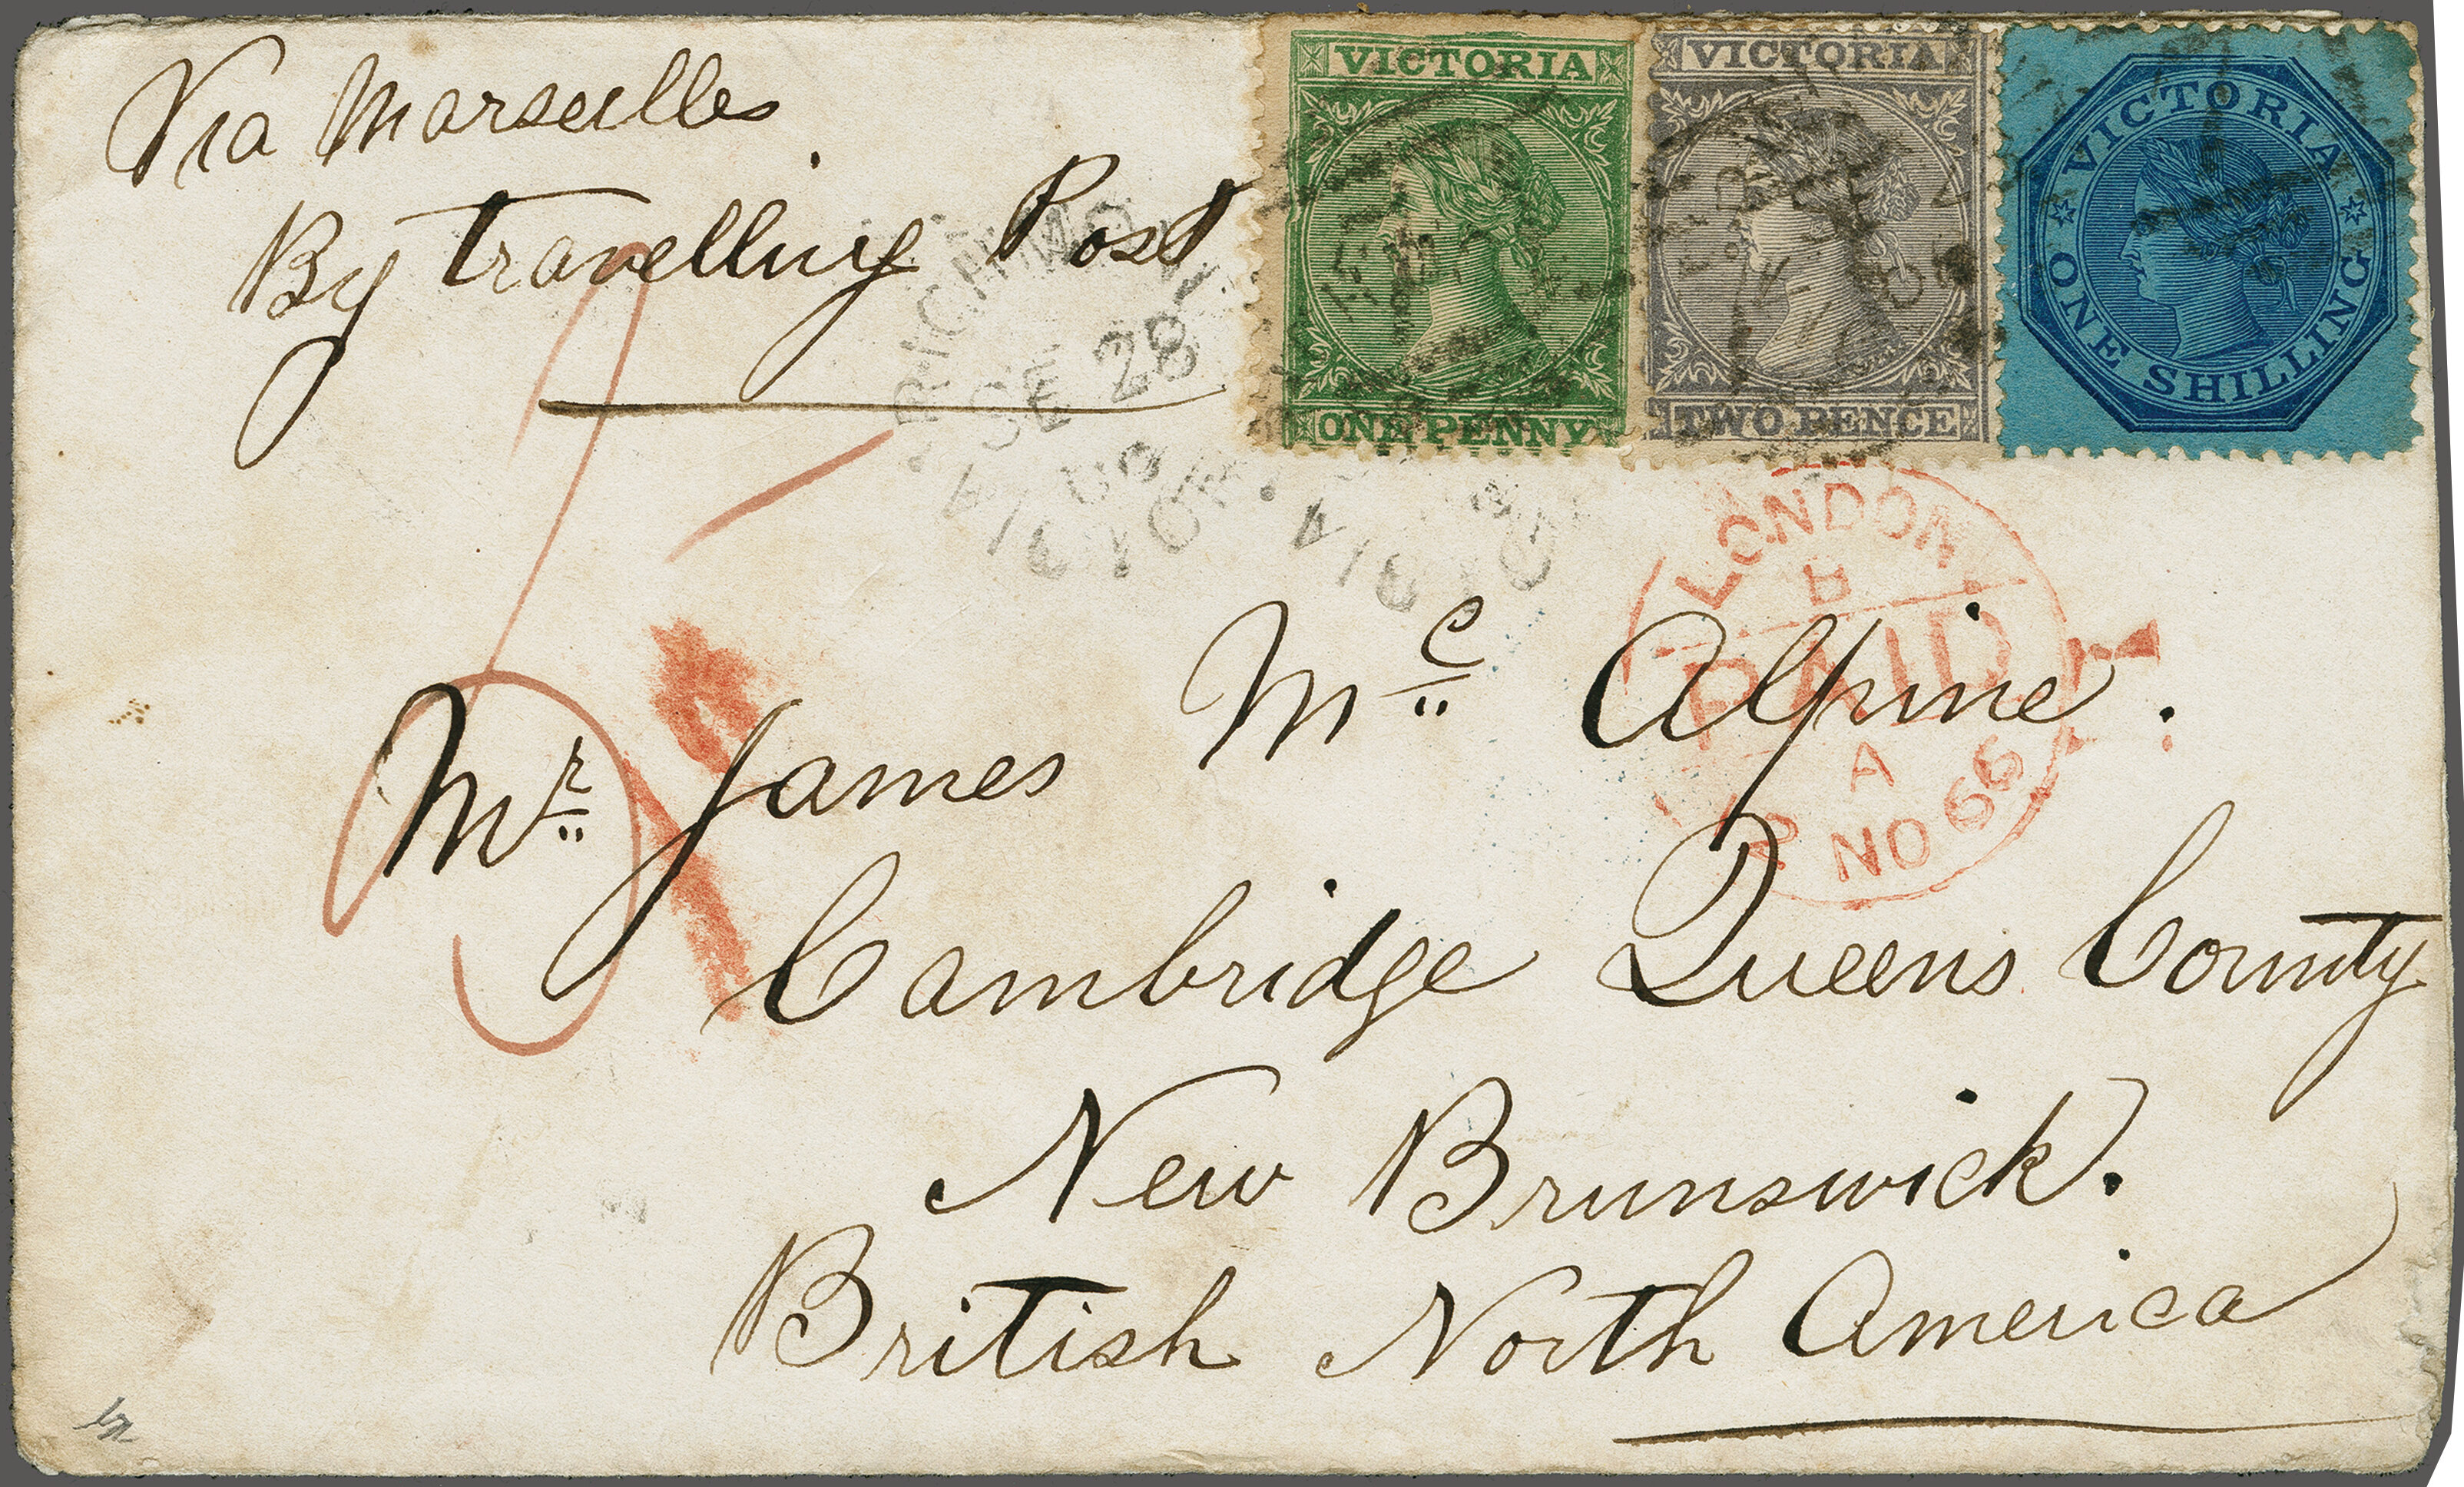 Via Marseilles
By travelling Post
VICTORIA
ONE PENNY
VICTORIA
TWO PENCE
VICTORIA
ONE SHILLING
RICHMOND
SE 28
66
VICTORIA
LONDON
B
PAID
A
NO 66
Mr James Mc Alpine.
Cambridge Queens County
New Brunswick.
British North America